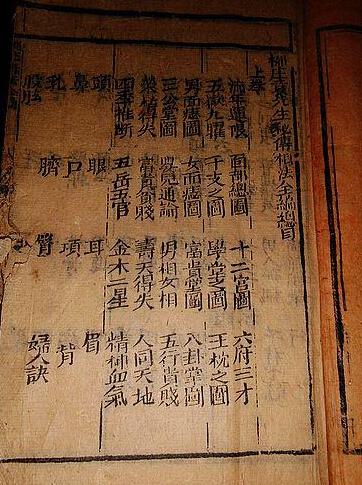 柳庄袁先生秘傳相法全編總目
上卷
流年運限 面部總圖 十二宮圖 六府三才
五嶽九曜 干支之圖 學堂之圖 玉枕之圖
男面痣圖 女面痣圖 富貴堂圖 八卦掌圖
三公掌圖 通論 男相女相 五行貴賤
榮枯得失 富貴貧賤 壽夭得失 人同天地
四季推斷 五岳五官 金木二星 精神血氣
頭 眼 耳 眉
鼻 口 項 背
乳 臍 婦人訣
股肱